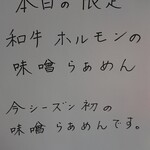 本日の限定
和牛ホルモンの
味噌らぁめん
今シーズン初の
味噌らぁめんです。